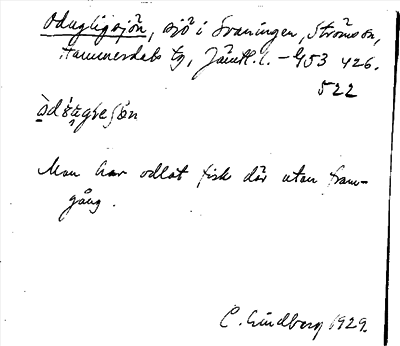 Odugligsjön, sjö i Svaningen, Strömsön,
Hammerdals tg, Jämtl. l. – 453 426.
522
Man har odlat fisk där utan fram-
gång.
C. Lindberg 1929.